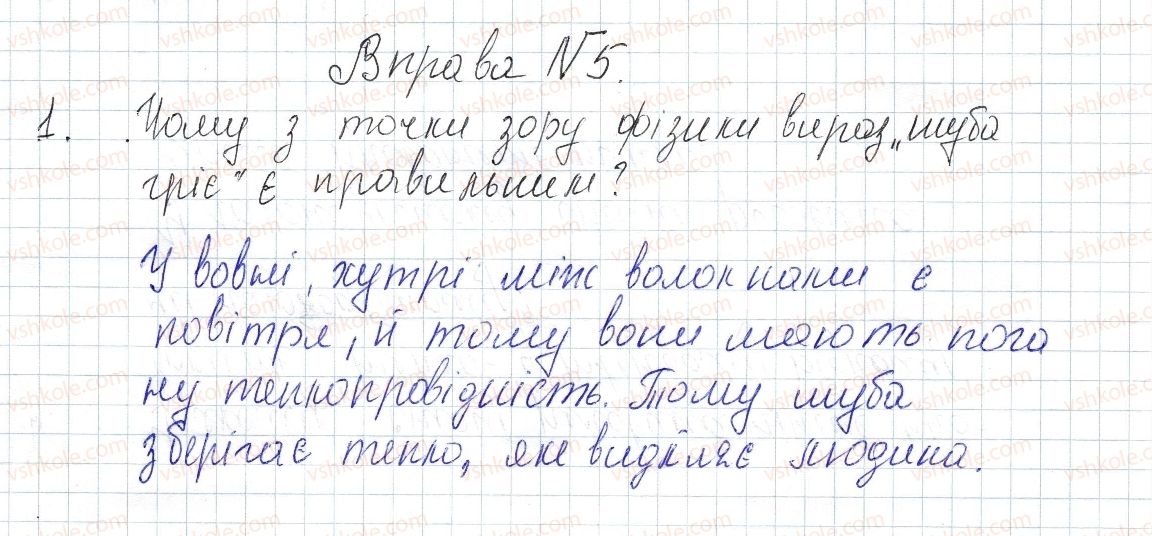 Вправа №5.
1. Чому з точки зору фізики вираз „шуба
гріє" є правильним?
У вовні, хутрі між волокнами є
повітря, й тому вони мають пога
ну теплопровідність. Тому шуба
зберігає тепло, яке виділяє людина.